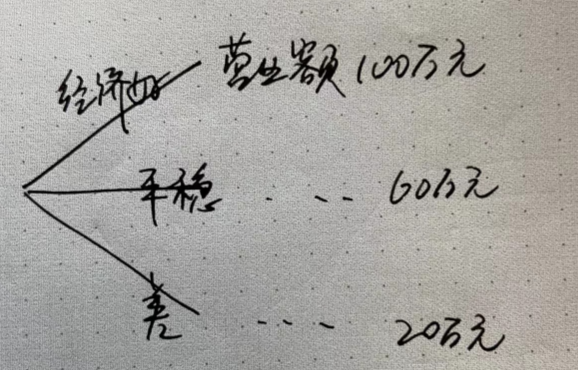 经济好 营业额100万元
平稳 · -- 60万元
差 ---- 20万元